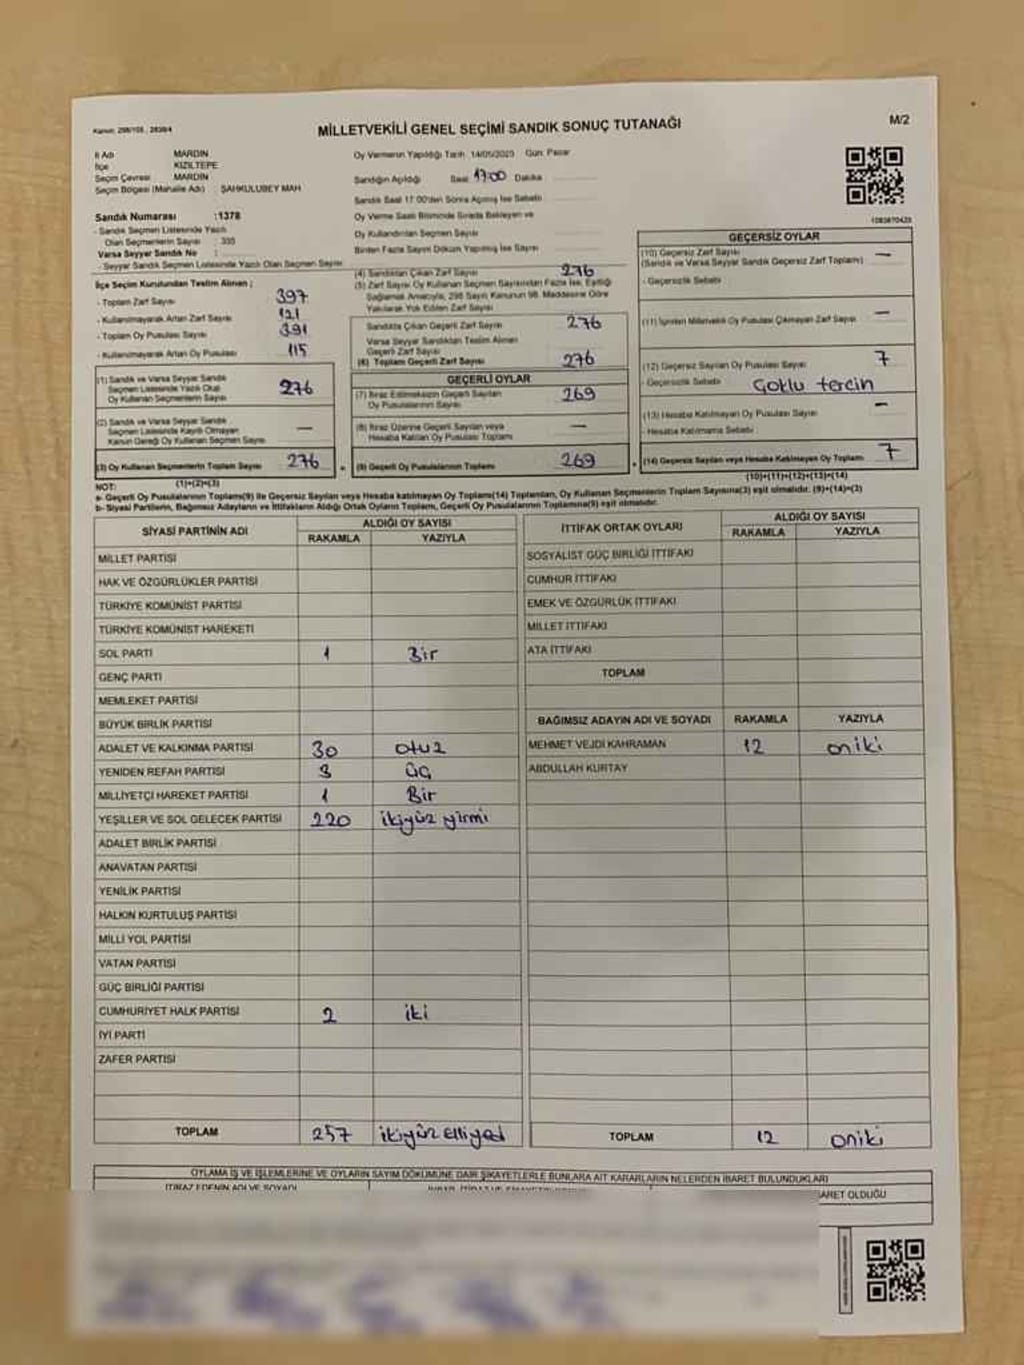 Kanun: 298/105, 2839/4
MİLLETVEKİLİ GENEL SEÇİMİ SANDIK SONUÇ TUTANAĞI
M/2
İl Adı MARDİN
İlçe KIZILTEPE
Seçim Çevresi MARDİN
Seçim Bölgesi (Mahalle Adı) : ŞAHKULUBEY MAH
Sandık Numarası :1378
- Sandık Seçmen Listesinde Yazılı
Olan Seçmenlerin Sayısı :
Varsa Seyyar Sandık No :
- Seyyar Sandık Seçmen Listesinde Yazılı Olan Seçmen Sayısı
İlçe Seçim Kurulundan Teslim Alınan ;
- Toplam Zarf Sayısı 397
- Kullanılmayarak Artan Zarf Sayısı 121
- Toplam Oy Pusulası Sayısı 391
- Kullanılmayarak Artan Oy Pusulası 115
(1) Sandık ve Varsa Seyyar Sandık
Seçmen Listesinde Yazılı Olup
Oy Kullanan Seçmenlerin Sayısı 276
(2) Sandık ve Varsa Seyyar Sandık
Seçmen Listesinde Kayıtlı Olmayan
Kanun Gereği Oy Kullanan Seçmen Sayısı —
(3) Oy Kullanan Seçmenlerin Toplam Sayısı 276
(1)+(2)=(3)
Oy Vermenin Yapıldığı Tarih 14/05/2023 Gün: Pazar
Sandığın Açıldığı Saat 17:00 Dakika
Sandık Saat 17:00'den Sonra Açılmış İse Sebebi
Oy Verme Saati Bitiminde Sırada Bekleyen ve
Oy Kullandırılan Seçmen Sayısı
Birden Fazla Sayım Döküm Yapılmış İse Sayısı
(4) Sandıktan Çıkan Zarf Sayısı 276
(5) Zarf Sayısı Oy Kullanan Seçmen Sayısından Fazla İse, Eşitliği
Sağlamak Amacıyla, 298 Sayılı Kanunun 98. Maddesine Göre
Yakılarak Yok Edilen Zarf Sayısı
Sandıkta Çıkan Geçerli Zarf Sayısı 276
Varsa Seyyar Sandıktan Teslim Alınan
Geçerli Zarf Sayısı
(6) Toplam Geçerli Zarf Sayısı 276
GEÇERLİ OYLAR
(7) İtiraz Edilmeksizin Geçerli Sayılan
Oy Pusulalarının Sayısı 269
(8) İtiraz Üzerine Geçerli Sayılan veya
Hesaba Katılan Oy Pusulası Toplamı —
(9) Geçerli Oy Pusulalarının Toplamı 269
GEÇERSİZ OYLAR
(10) Geçersiz Zarf Sayısı —
(Sandık ve Varsa Seyyar Sandık Geçersiz Zarf Toplamı)
- Geçersizlik Sebebi
(11) İçinden Milletvekili Oy Pusulası Çıkmayan Zarf Sayısı —
(12) Geçersiz Sayılan Oy Pusulası Sayısı 7
- Geçersizlik Sebebi Çoklu tercin
(13) Hesaba Katılmayan Oy Pusulası Sayısı —
- Hesaba Katılmama Sebebi
(14) Geçersiz Sayılan veya Hesaba Katılmayan Oy Toplamı 7
(10)+(11)+(12)+(13)=(14)
NOT:
a- Geçerli Oy Pusulalarının Toplamı(9) ile Geçersiz Sayılan veya Hesaba katılmayan Oy Toplamı(14) Toplamları, Oy Kullanan Seçmenlerin Toplam Sayısına(3) eşit olmalıdır. (9)+(14)=(3)
b- Siyasi Partilerin, Bağımsız Adayların ve İttifakların Aldığı Ortak Oyların Toplamı, Geçerli Oy Pusulalarının Toplamına(9) eşit olmalıdır.
SİYASİ PARTİNİN ADI ALDIĞI OY SAYISI
RAKAMLA YAZIYLA
MİLLET PARTİSİ
HAK VE ÖZGÜRLÜKLER PARTİSİ
TÜRKİYE KOMÜNİST PARTİSİ
TÜRKİYE KOMÜNİST HAREKETİ
SOL PARTİ 1 Bir
GENÇ PARTİ
MEMLEKET PARTİSİ
BÜYÜK BİRLİK PARTİSİ
ADALET VE KALKINMA PARTİSİ 30 otuz
YENİDEN REFAH PARTİSİ 3 üç
MİLLİYETÇİ HAREKET PARTİSİ 1 Bir
YEŞİLLER VE SOL GELECEK PARTİSİ 220 ikiyüz yirmi
ADALET BİRLİK PARTİSİ
ANAVATAN PARTİSİ
YENİLİK PARTİSİ
HALKIN KURTULUŞ PARTİSİ
MİLLİ YOL PARTİSİ
VATAN PARTİSİ
GÜÇ BİRLİĞİ PARTİSİ
CUMHURİYET HALK PARTİSİ 2 iki
İYİ PARTİ
ZAFER PARTİSİ
TOPLAM 257 ikiyüz elliyedi
İTTİFAK ORTAK OYLARI ALDIĞI OY SAYISI
RAKAMLA YAZIYLA
SOSYALİST GÜÇ BİRLİĞİ İTTİFAKI
CUMHUR İTTİFAKI
EMEK VE ÖZGÜRLÜK İTTİFAKI
MİLLET İTTİFAKI
ATA İTTİFAKI
TOPLAM
BAĞIMSIZ ADAYIN ADI VE SOYADI RAKAMLA YAZIYLA
MEHMET VEJDİ KAHRAMAN 12 oniki
ABDULLAH KURTAY
TOPLAM 12 oniki
OYLAMA İŞ VE İŞLEMLERİNE VE OYLARIN SAYIM DÖKÜMÜNE DAİR ŞİKAYETLERLE BUNLARA AİT KARARLARIN NELERDEN İBARET BULUNDUKLARI
İTİRAZ EDENİN ADI VE SOYADI
BARET OLDUĞU